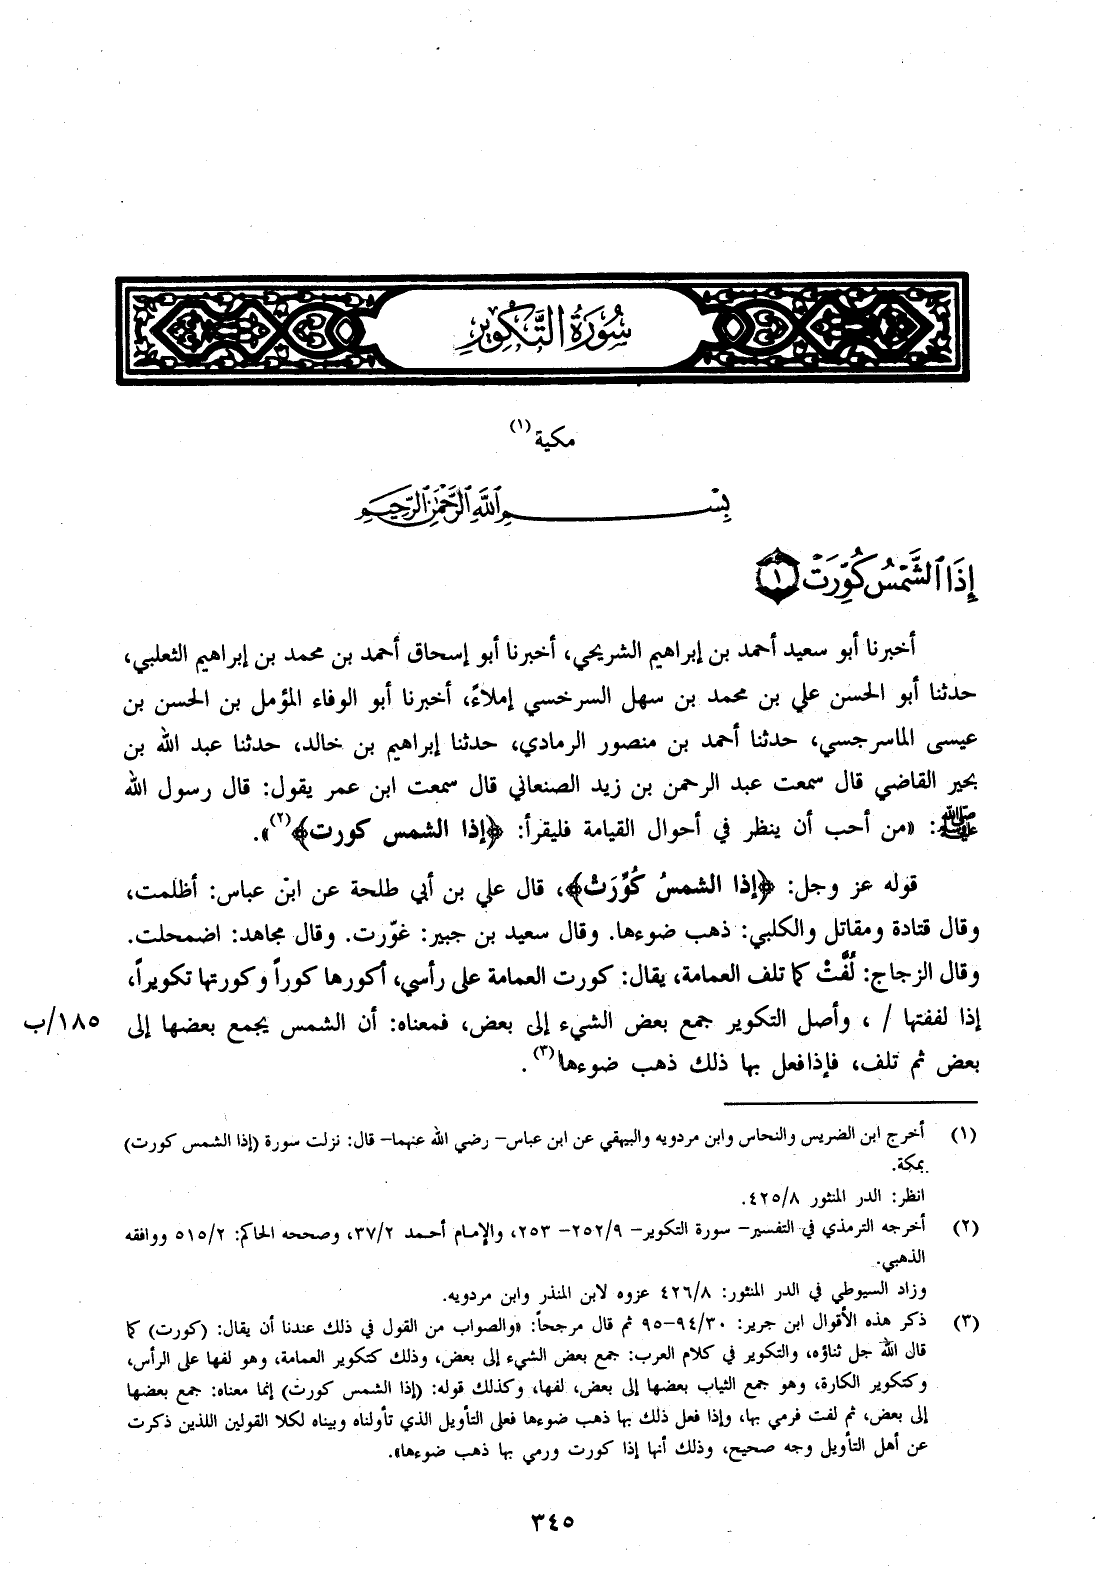 سُورَةُ التَّكْوِيرِ
مكية (١)
بِسْمِ اللَّهِ الرَّحْمَٰنِ الرَّحِيمِ
إِذَا الشَّمْسُ كُوِّرَتْ ١
أخبرنا أبو سعيد أحمد بن إبراهيم الشريحي، أخبرنا أبو إسحاق أحمد بن محمد بن إبراهيم الثعلبي،
حدثنا أبو الحسن علي بن محمد بن سهل السرخسي إملاءً، أخبرنا أبو الوفاء المؤمل بن الحسن بن
عيسى الماسرجسي، حدثنا أحمد بن منصور الرمادي، حدثنا إبراهيم بن خالد، حدثنا عبد الله بن
بحير القاضي قال سمعت عبد الرحمن بن زيد الصنعاني قال سمعت ابن عمر يقول: قال رسول الله
ﷺ: «من أحب أن ينظر في أحوال القيامة فليقرأ: ﴿إذا الشمس كورت﴾(٢)».
قوله عز وجل: ﴿إذا الشمسُ كُوِّرَتْ﴾، قال علي بن أبي طلحة عن ابن عباس: أظلمت،
وقال قتادة ومقاتل والكلبي: ذهب ضوءها. وقال سعيد بن جبير: غوّرت. وقال مجاهد: اضمحلت.
وقال الزجاج: لُفَّتْ كما تلف العمامة، يقال: كورت العمامة على رأسي، أكورها كوراً وكورتها تكويراً،
إذا لففتها / ، وأصل التكوير جمع بعض الشيء إلى بعض، فمعناه: أن الشمس يجمع بعضها إلى ١٨٥/ب
بعض ثم تلف، فإذا فعل بها ذلك ذهب ضوءها(٣).
(١) أخرج ابن الضريس والنحاس وابن مردويه والبيهقي عن ابن عباس- رضي الله عنهما- قال: نزلت سورة (إذا الشمس كورت)
بمكة.
انظر: الدر المنثور ٤٢٥/٨.
(٢) أخرجه الترمذي في التفسير- سورة التكوير- ٢٥٢/٩- ٢٥٣، والإمام أحمد ٣٧/٢، وصححه الحاكم: ٥١٥/٢ ووافقه
الذهبي.
وزاد السيوطي في الدر المنثور: ٤٢٦/٨ عزوه لابن المنذر وابن مردويه.
(٣) ذكر هذه الأقوال ابن جرير: ٩٤/٣٠-٩٥ ثم قال مرجحاً: «والصواب من القول في ذلك عندنا أن يقال: (كورت) كما
قال الله جل ثناؤه، والتكوير في كلام العرب: جمع بعض الشيء إلى بعض، وذلك كتكوير العمامة، وهو لفها على الرأس،
وكتكوير الكارة، وهو جمع الثياب بعضها إلى بعض، لفها، وكذلك قوله: (إذا الشمس كورت) إنما معناه: جمع بعضها
إلى بعض، ثم لفت فرمي بها، وإذا فعل ذلك بها ذهب ضوءها فعلى التأويل الذي تأولناه وبيناه لكلا القولين اللذين ذكرت
عن أهل التأويل وجه صحيح، وذلك أنها إذا كورت ورمي بها ذهب ضوءها».
٣٤٥